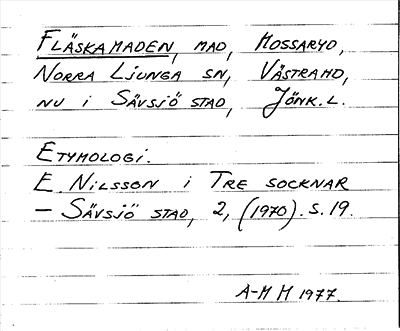 FLÄSKAMADEN, MAD, MOSSARYD,
NORRA LJUNGA SN, VÄSTRA HD,
NU I SÄVSJÖ STAD, JÖNK. L.
ETYMOLOGI.
E. NILSSON I TRE SOCKNAR
– SÄVSJÖ STAD, 2, (1970). S. 19.
A-M M 1977.